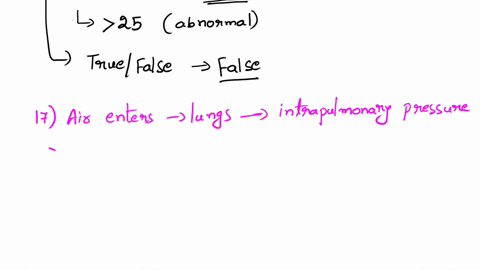 ↳ >25 (abnormal)
↳ True/False → False
17) Air enters → lungs → intrapulmonary pressure